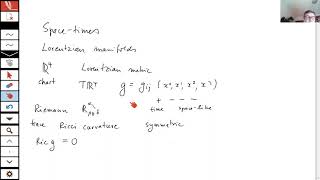 Space-times
Lorentzian manifolds
ℝ⁴ Lorentzian metric
chart Tℝ⁴ g = g_ij (x⁰, x¹, x², x³)
+ − − −
time space-like
Riemann
trace Ricci curvature symmetric
Ric g = 0